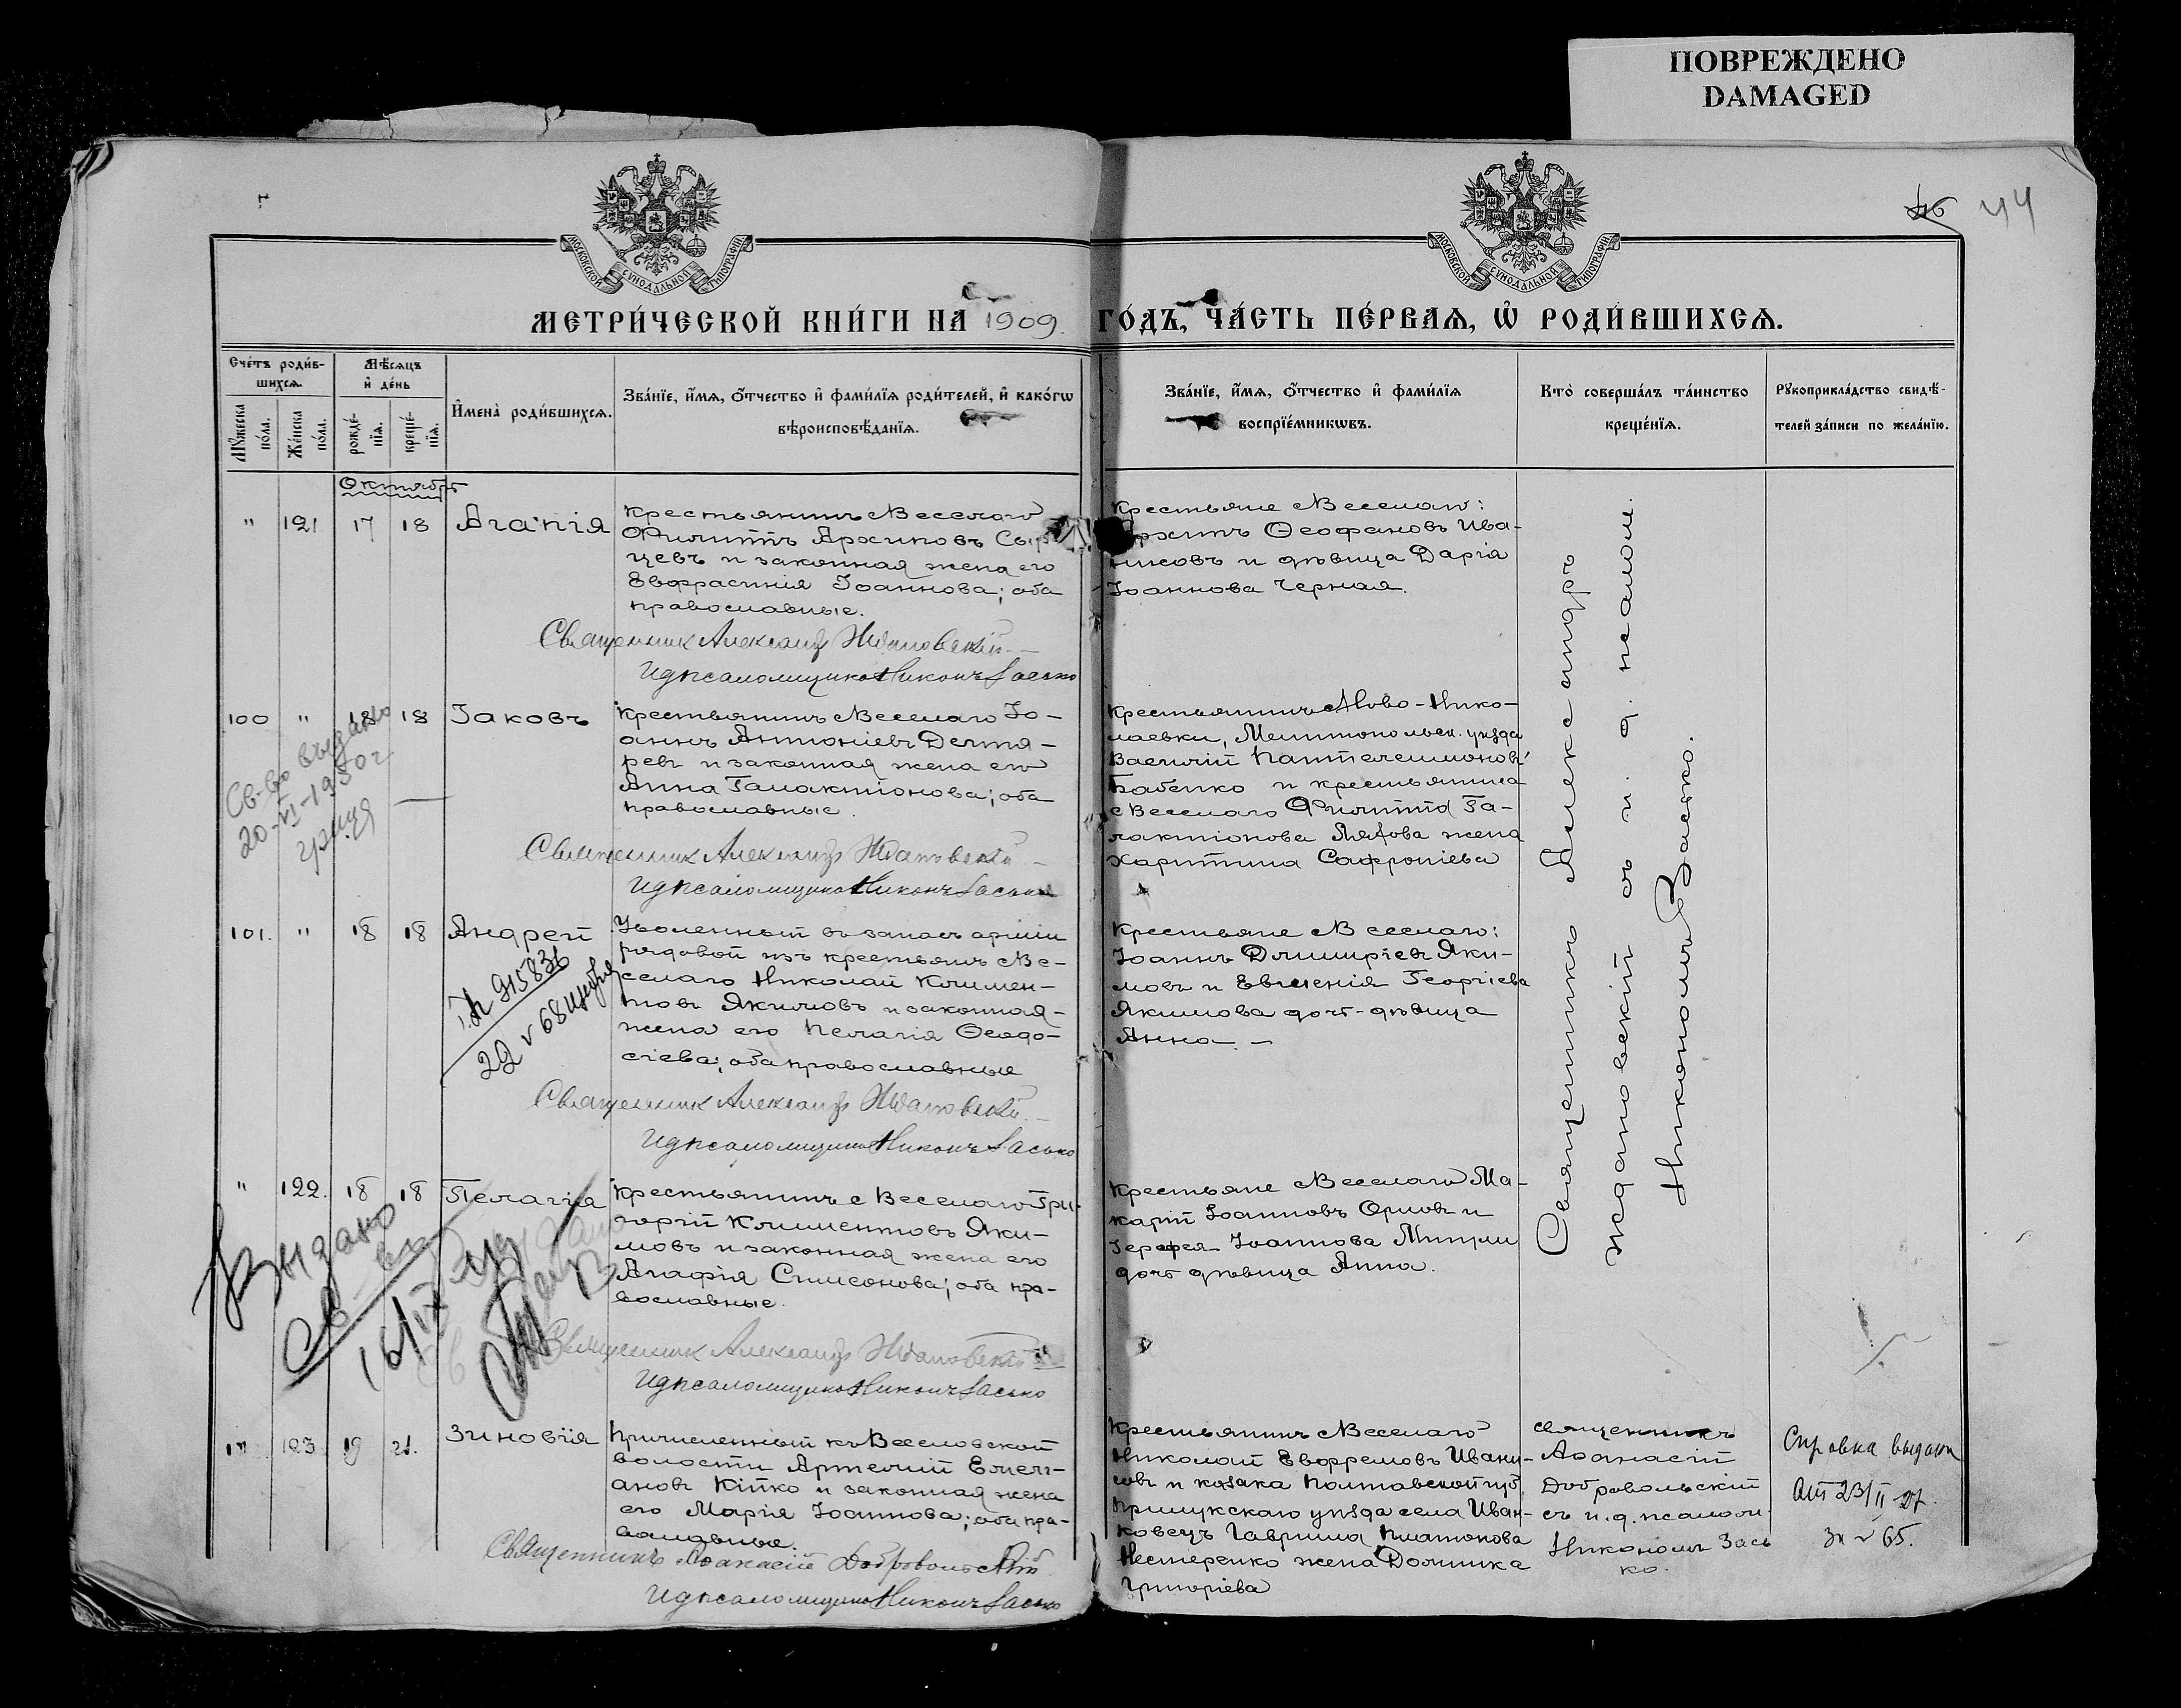 ПОВРЕЖДЕНО
DAMAGED
44
МОСКОВСКОЙ СѴНОДАЛЬНОЙ ТИПОГРАФІИ
МОСКОВСКОЙ СѴНОДАЛЬНОЙ ТИПОГРАФІИ
МЕТРИ́ЧЕСКОЙ КНИ́ГИ НА 1909 ГО́ДЪ, ЧА́СТЬ ПЕ́РВАѦ, Ѡ҆ РОДИ́ВШИХСѦ.
Сче́тъ роди́в-
шихсѧ.
Мѣ́сѧцъ
и҆ де́нь
Мꙋ́жеска по́ла.
Же́нска по́ла.
рожде́-
нїѧ.
креще́-
нїѧ.
И҆мена̀ роди́вшихсѧ.
Зва́нїе, и҆́мѧ, ѻ҆́тчество и҆ фами́лїѧ роди́телей, и҆ како́гѡ
вѣроисповѣ́данїѧ.
Зва́нїе, и҆́мѧ, ѻ҆́тчество и҆ фами́лїѧ
воспрїе́мникѡвъ.
Кто̀ соверша́лъ та́инство
креще́нїѧ.
Рꙋкоприкла́дство свидѣ́-
телей за́писи по жела́нїю.
Октябрь
" 121 17 18 Агапія
Крестьянинъ с Веселаго
Филиппъ Архиповъ Сыр-
цевъ и законная жена его
Евфрасинія Іоаннова; оба
православные.
Священник Александр Ждановский
И д псаломщика Никонъ Засько
Крестьяне с Веселаго:
Архипъ Ѳеофановъ Ива-
нисовъ и дѣвица Дарія
Іоаннова Черная.
100 " 18 18 Іаковъ
Крестьянинъ с Веселаго Іо-
аннъ Антоніевъ Дегтя-
ревъ и законная жена его
Анна Галактіонова; оба
православные.
Священник Александр Ждановский
И д псаломщика Никонъ Засько
Св-во выдано
20-VI-1930 г
Крестьянинъ с Ново-Нико-
лаевки, Мелитопольск. уѣзда
Василій Пантелеимоновъ
Бабенко и крестьянина
с Веселаго Филиппа Га-
лактіонова жена
Харитина Сафроніева
101. " 18 18 Андрей
Уволенный въ запасъ арміи
рядовой изъ крестьянъ с Ве-
селаго Николай Климен-
товъ Якимовъ и законная
жена его Пелагія Ѳеодо-
сіева; оба православные
Священник Александр Ждановский
И д псаломщика Никонъ Засько
915836
Крестьяне с Веселаго:
Іоаннъ Димитріевъ Яки-
мовъ и Евгенія Георгіева
Якимова дочь-дѣвица
Анна.
" 122. 18 18 Пелагія
Крестьянинъ с Веселаго Гри-
горій Климентовъ Яки-
мовъ и законная жена его
Агафія Симеонова; оба пра-
вославные.
Священник Александр Ждановский
И д псаломщика Никонъ Засько
Выдано
св-во
16/IX
Крестьяне с Веселаго Ма-
карій Іоанновъ Орловъ и
Іоаннова
дочь дѣвица Анна.
Священникъ Александръ
Ждановскій съ и. д. псалом.
Никономъ Засько.
" 123 19 21. Зиновія
Причисленный къ Веселовской
волости Артемій Емель-
яновъ Кійко и законная жена
его Марія Іоаннова; оба пра-
вославные.
Священникъ Аѳанасій Добровольскій
И д псаломщика Никонъ Засько
Крестьянинъ с Веселаго
Николай Евфремовъ Ивани-
совъ и козака Полтавской губ.
Прилукскаго уѣзда села Иван-
ковецъ Гавриила Платонова
Нестеренко жена Домника
Григоріева
священникъ
Аѳанасій
Добровольскій
съ и. д. псаломщ.
Никономъ Зась
ко.
Справка выдана
23/II 27.
за № 65.